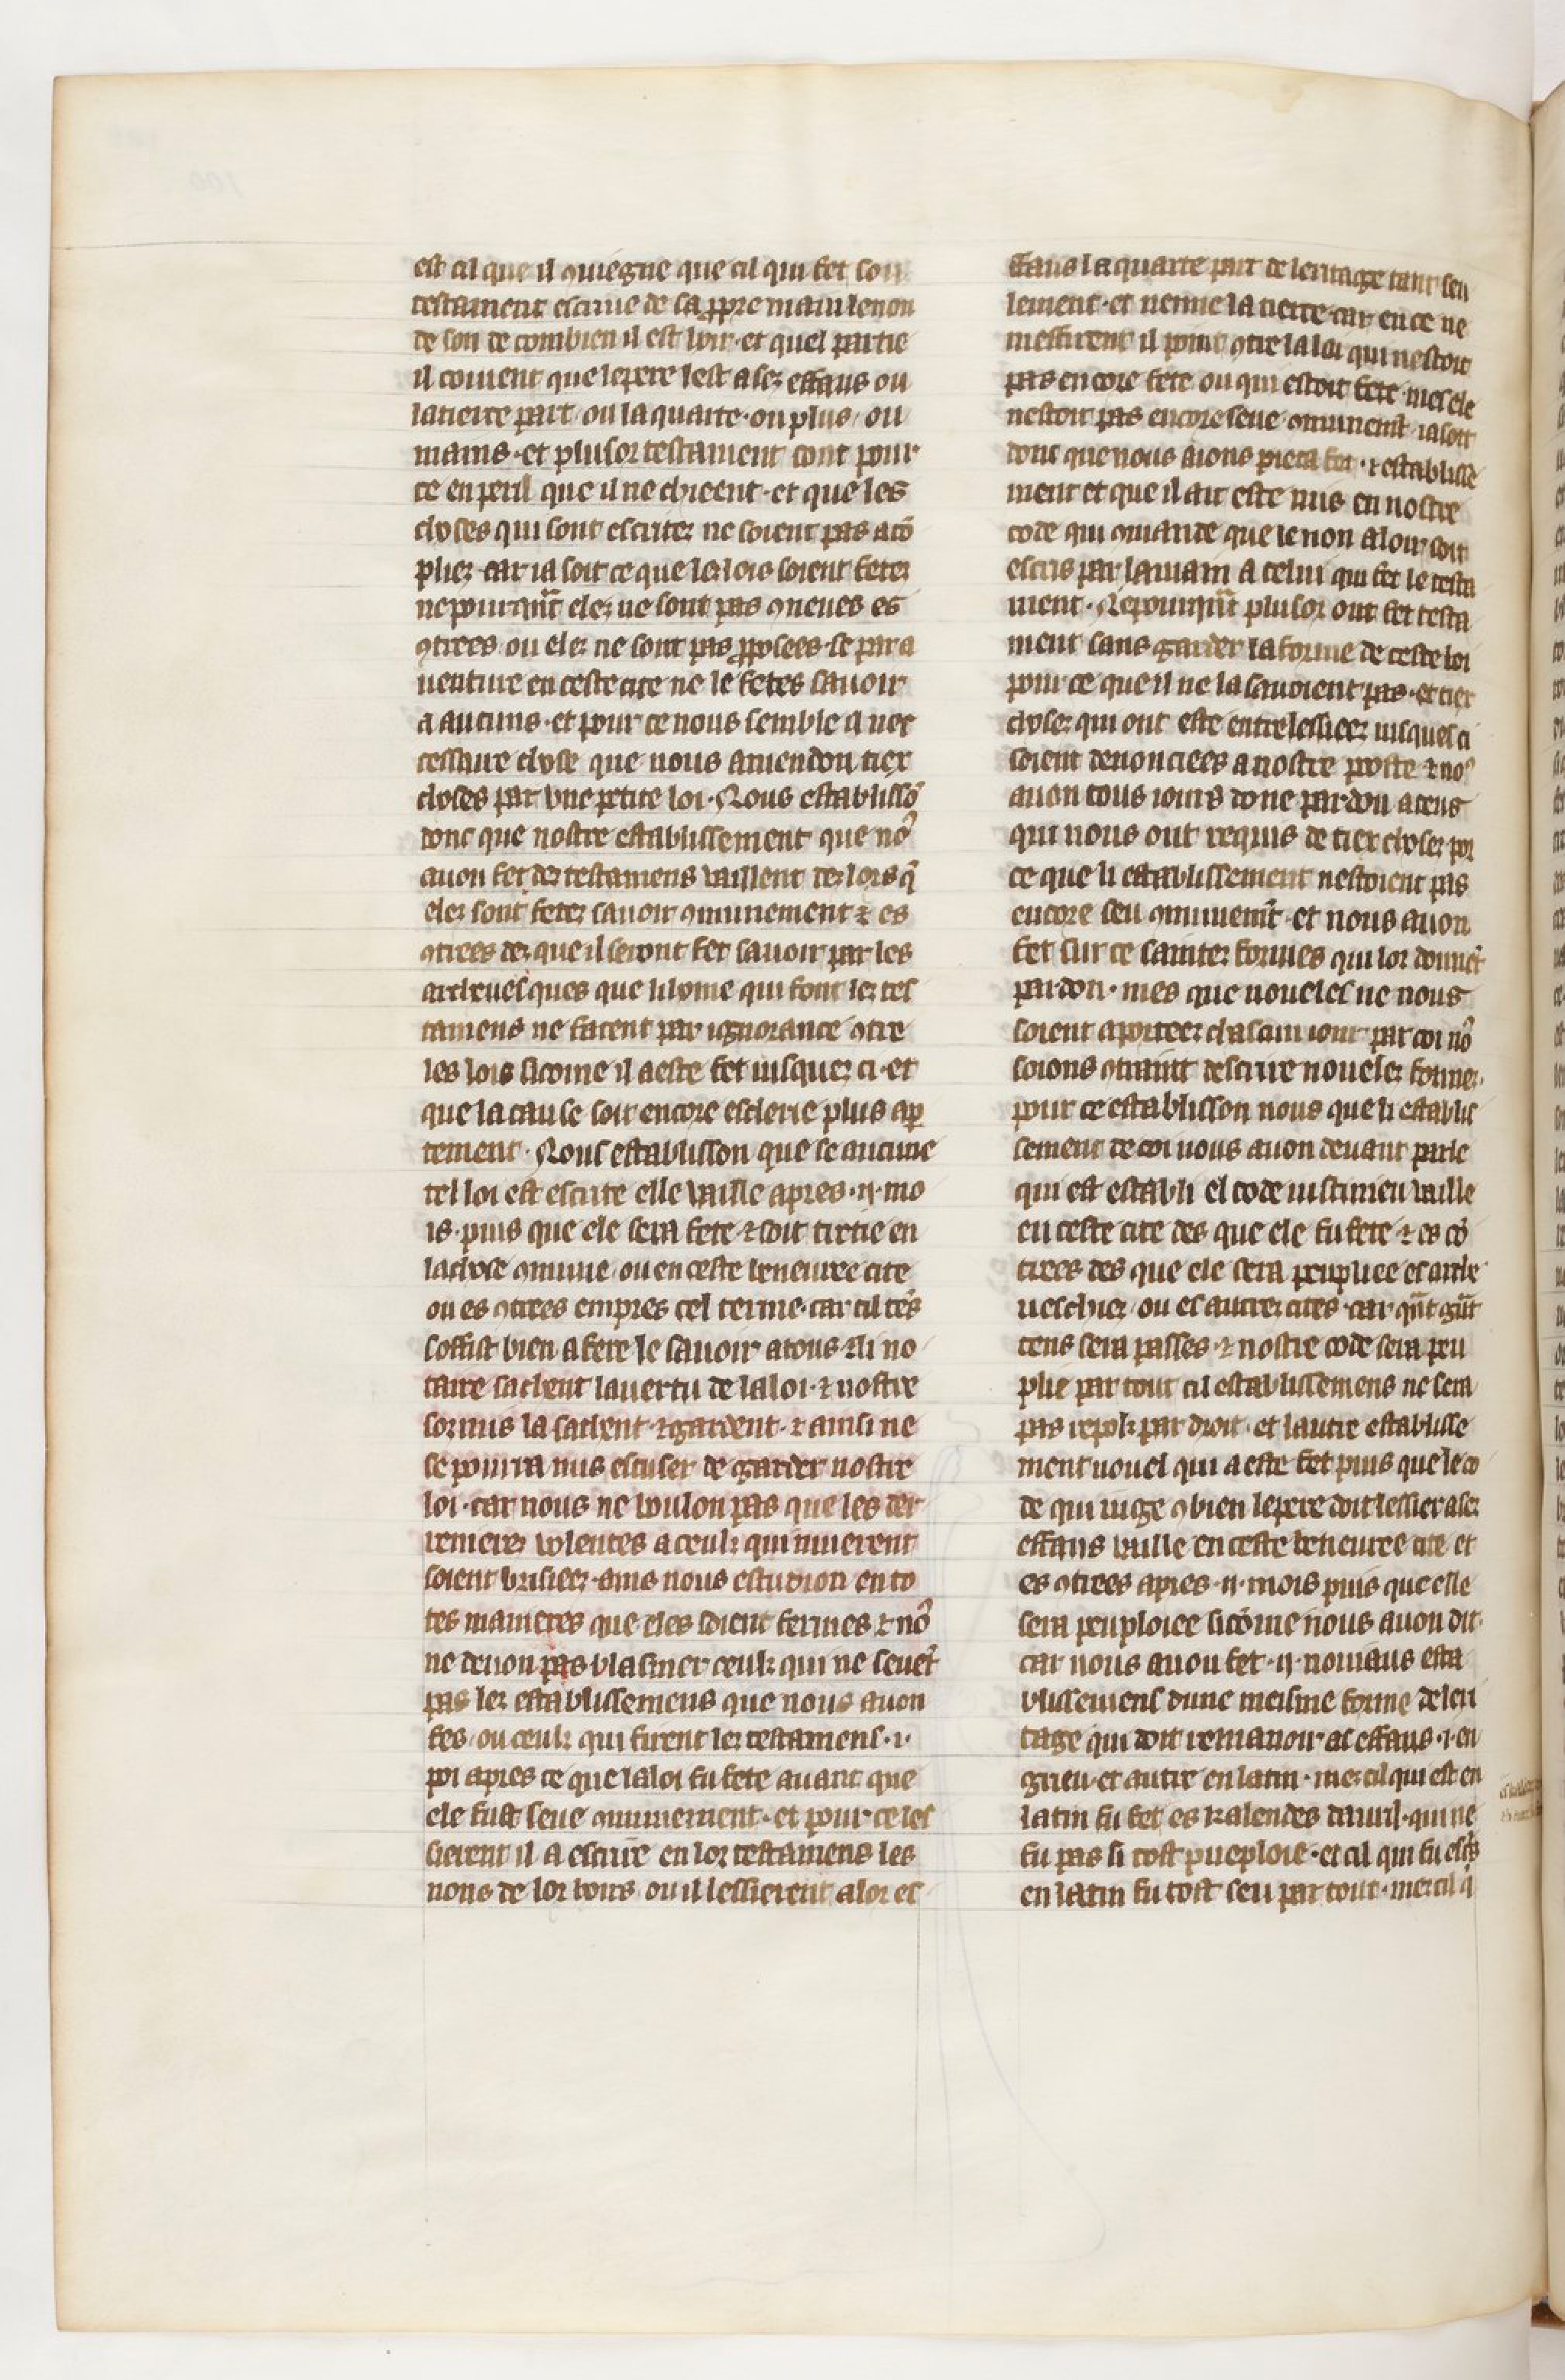 est cil que il ꝯuiegne que cil qui fet son
testament escriue de sa ꝓpre main le non
de son de combien il est hoir · et quel partie
il couient que le pere lest a sez effans ou
la tierce part / ou la quarte · ou plus / ou
mains · et plusor testament cont pour
ce en peril que il ne chieent · et que les
choses qui sont escritez ne soient pas acō
pliez · car ia soit ce que lez lois soient fetez
ne pourqnt elez ne sont pas ꝯneues es
ꝯtrees ou elez ne sont pas ꝓposees · se par a
uenture en ceste cite ne le fetes sauoir
a aucuns · et pour ce nous semble a nec
cessaire chose que nous amendon tiex
choses par vne petite loi · Nous establissō
donc que nostre establissement que no9
auon fet dez testamens vaillent dez lors q̄
elez sont fetez sauoir ꝯmunement ⁊ es
ꝯtrees dez que il seront fet sauoir par les
archeuesques que li home qui font lez tes
tamens ne facent par ignorance ꝯtre
les lois sicome il a este fet iusquez ci · et
que la cause soit encore esclerie plus ap
tement · Nous establisson que se aucune
tel loi est escrite elle vaille apres · ij · mo
is · puis que ele sera fete ⁊ soit tirtie en
la chose ꝯmune / ou en ceste beneuree cite
ou es ꝯtrees empres cel terme · car cil tēs
soffist bien a fere le sauoir a tous · ⁊ li no
taire sachent la uertu de la loi · ⁊ nostre
sormis la sachent · ⁊ gardent · ⁊ ainsi ne
se pourra nus escuser de garder nostre
loi · car nous ne voulon pas que les der
renierez volentes a ceulz qui muierent
soient brisieez · ains nous estudion en to
tes manieres que eles soient fermes ⁊ no9
ne deuon pas blasmer ceulz qui ne seuēt
pas lez establissemens que nous auon
fes / ou ceulz qui firent lez testamens · i ·
poi apres ce que la loi fu fete auant que
ele fust seue ꝯmunement · et pour ce les
sierent il a escrire en lor testamens les
nons de lor hoirs / ou il lessierent a lor ef
fans la quarte part de leritage tant seu
lement · et nenne la tierce · car en ce ne
mesfirent il point ꝯtre la loi qui nestoit
pas encore fete ou qui estoit fete · mes ele
nestoit pas encore seue ꝯmunemt̄ · ia soit
donc que nous aions pieca fet · ⁊ establisse
ment et que il ait este mis en nostre
code qui ꝯmande que le non a l oir soit
escris par la main a celui qui fet le testa
ment · Ne pourqnt plusor ont fet testa
ment sans garder la forme de ceste loi
pour ce que il ne la sauoient pas · et tiex
chosez qui ont este entrelessieez iusques ci
soient denonciees a nostre poste ⁊ no9
auon tous iours done pardon a ceus
qui nous ont requis de tiex chosez por
ce que li establissement nestoient pas
encore seu ꝯmunemt̄ · et nous auon
fet sur ce saintez formes qui lor donnēt
pardon · mes que nouueles ne nous
soient aporteez chascun iour par coi no9
soions ꝯtraint descrire nouelez formez ·
pour ce establisson nous que li establis
sement de coi nous auon deuant parle
qui est establi el code iustinien vaille
en ceste cite des que ele fu fete ⁊ es cō
trees des que ele sera peupliee es arche
ueschiez / ou es autrez cites · car qnt gnt
tens sera passes ⁊ nostre code sera peu
plie par tout cil establissemens ne sera
pas repolz par droit · et lautre establisse
ment nouel qui a este fet puis que le co
de qui iuge ꝯbien le pere doit lessier a sez
effans vaille en ceste beneuree cite et
es ꝯtrees apres · ij · mois puis que elle
sera peuploiee sicōme nous auon dit ·
car nous auon fet · ij · nouiaus esta
blissemens dune meisme forme de leri
tage qui doit remanoir as effans · i · en
grieu · et autre en latin · mez cil qui est en
latin fu fet es kalendes dauril · qui ne
fu pas si tost pueploie · et cil qui fu escⁱs
en latin fu tost seu par tout · mez cil q̄